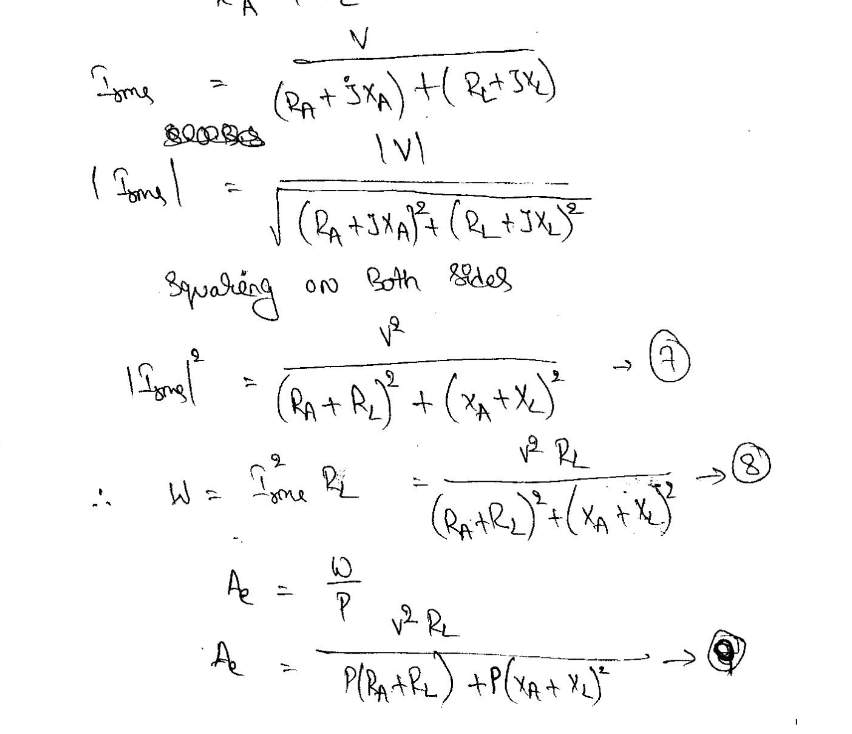 I_rms = V / (R_A + jX_A) + (R_L + jX_L)
|I_rms| = |V| / √(R_A + jX_A)² + (R_L + jX_L)²
Squaring on Both sides
|I_rms|² = V² / (R_A + R_L)² + (X_A + X_L)² → ⑦
∴ W = I²_rms R_L = V² R_L / (R_A + R_L)² + (X_A + X_L)² → ⑧
A_e = W / P
A_e = V² R_L / P(R_A + R_L) + P(X_A + X_L)² → ⑨